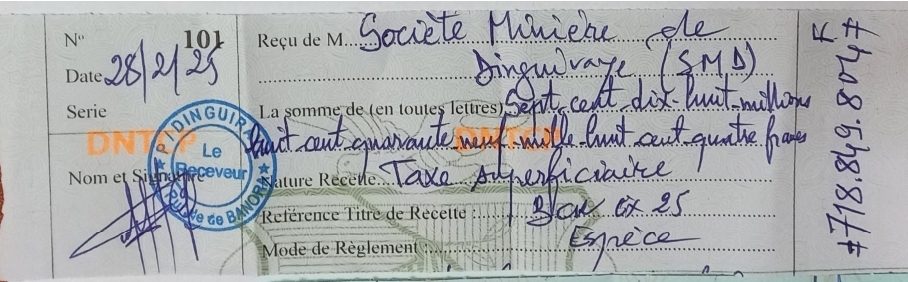 N° 101
Date 28/2/25
Serie
DNTCP
Nom et Signature
PI DINGUIRAYE
Le
Receveur
de BANORA
Reçu de M. Société Minière de
Dinguiraye (SMD)
La somme de (en toutes lettres) Sept cent dix-huit millions
huit cent quarante neuf mille huit cent quatre francs
DNTCP
Nature Recette Taxe superficiaire
Reférence Titre de Recette : ex 25
Mode de Règlement : Espèce
#718.849.804# F